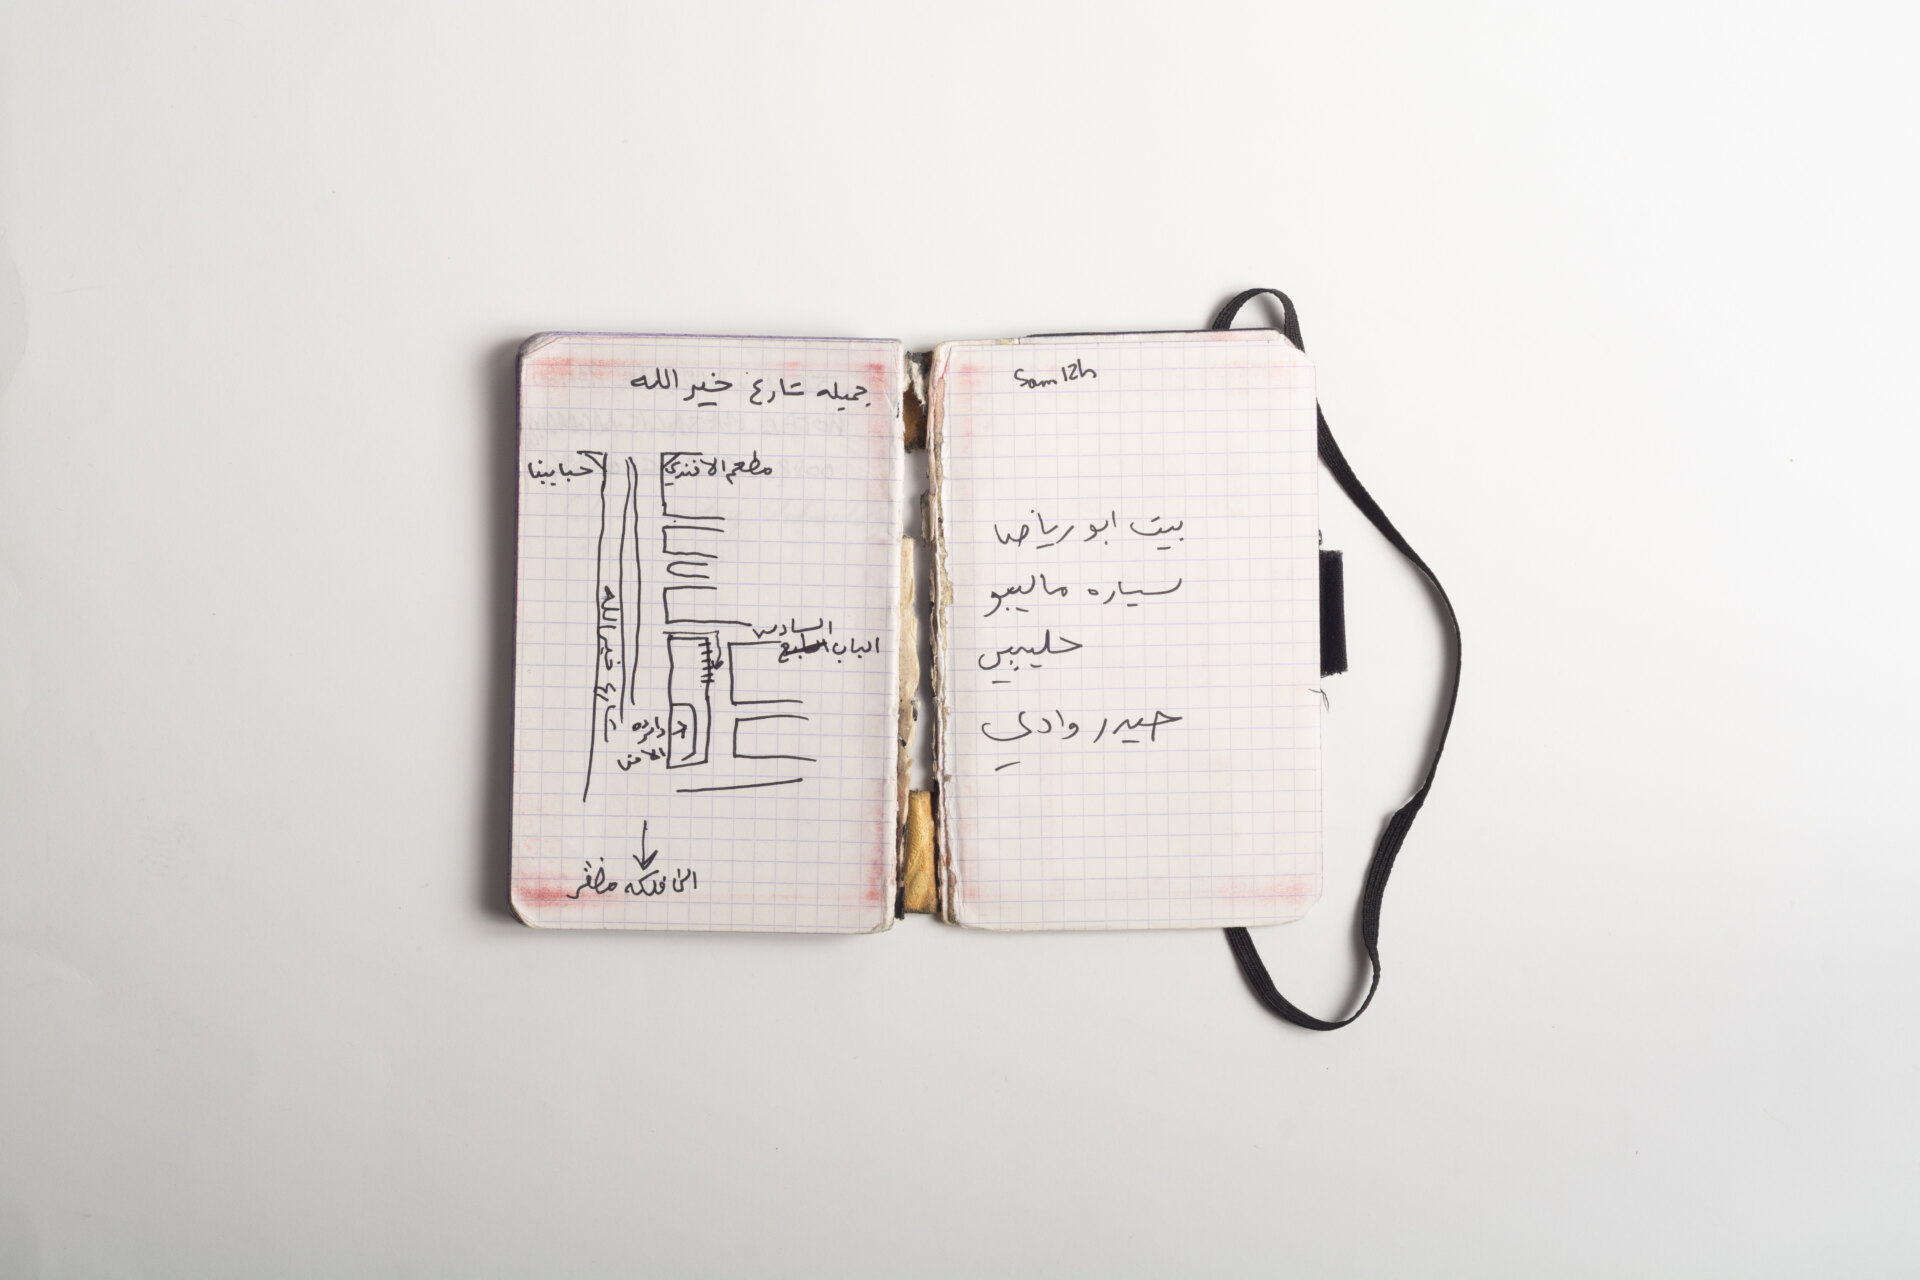 جميله شارع خير الله
حبايبنا
مطعم الافندي
شارع خير الله
السادس
الباب
دائره
الامن
الى فلكه مظفر
Sam 12h
بيت ابو رياض
سياره ماليبو
حليبي
حيدر وادي